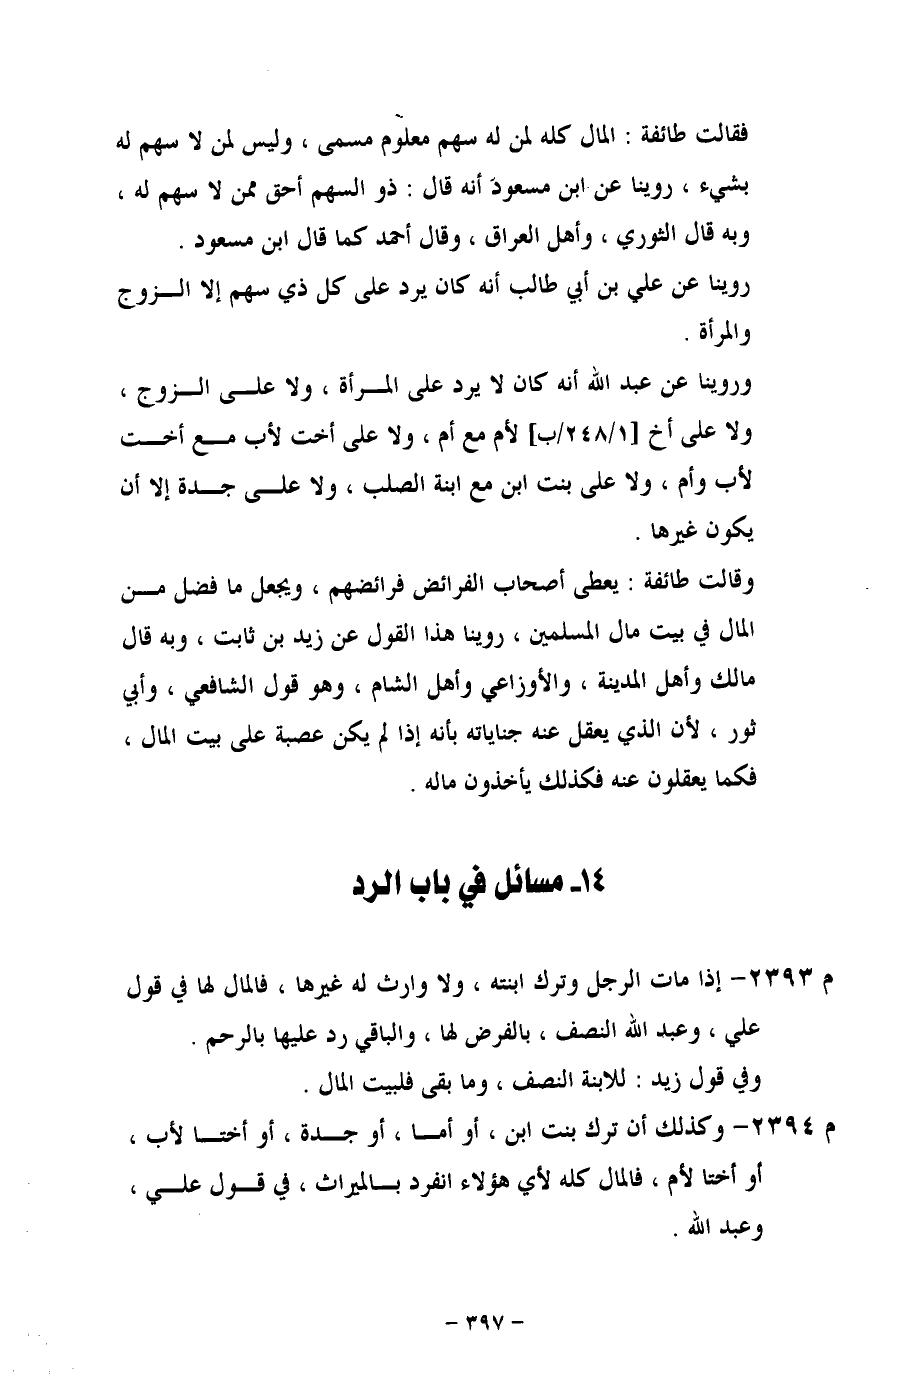 فقالت طائفة : المال كله لمن له سهم معلوم مسمى ، وليس لمن لا سهم له
بشيء ، روينا عن ابن مسعود أنه قال : ذو السهم أحق ممن لا سهم له ،
وبه قال الثوري ، وأهل العراق ، وقال أحمد كما قال ابن مسعود .
روينا عن علي بن أبي طالب أنه كان يرد على كل ذي سهم إلا الـــزوج
والمرأة .
وروينا عن عبد الله أنه كان لا يرد على المـــرأة ، ولا علـــى الـــزوج ،
ولا على أخ [٢٤٨/١/ب] لأم مع أم ، ولا على أخت لأب مـــع أخـــت
لأب وأم ، ولا على بنت ابن مع ابنة الصلب ، ولا علـــى جـــدة إلا أن
يكون غيرها .
وقالت طائفة : يعطى أصحاب الفرائض فرائضهم ، ويجعل ما فضل مـــن
المال في بيت مال المسلمين ، روينا هذا القول عن زيد بن ثابت ، وبه قال
مالك وأهل المدينة ، والأوزاعي وأهل الشام ، وهو قول الشافعي ، وأبي
ثور ، لأن الذي يعقل عنه جناياته بأنه إذا لم يكن عصبة على بيت المال ،
فكما يعقلون عنه فكذلك يأخذون ماله .
١٤ـ مسائل في باب الرد
م ٢٣٩٣– إذا مات الرجل وترك ابنته ، ولا وارث له غيرها ، فالمال لها في قول
علي ، وعبد الله النصف ، بالفرض لها ، والباقي رد عليها بالرحم .
وفي قول زيد : للابنة النصف ، وما بقى فلبيت المال .
م ٢٣٩٤– وكذلك أن ترك بنت ابن ، أو أمـــا ، أو جـــدة ، أو أختـــا لأب ،
أو أختا لأم ، فالمال كله لأي هؤلاء انفرد بـــالميراث ، في قـــول علـــي ،
وعبد الله .
– ٣٩٧ –